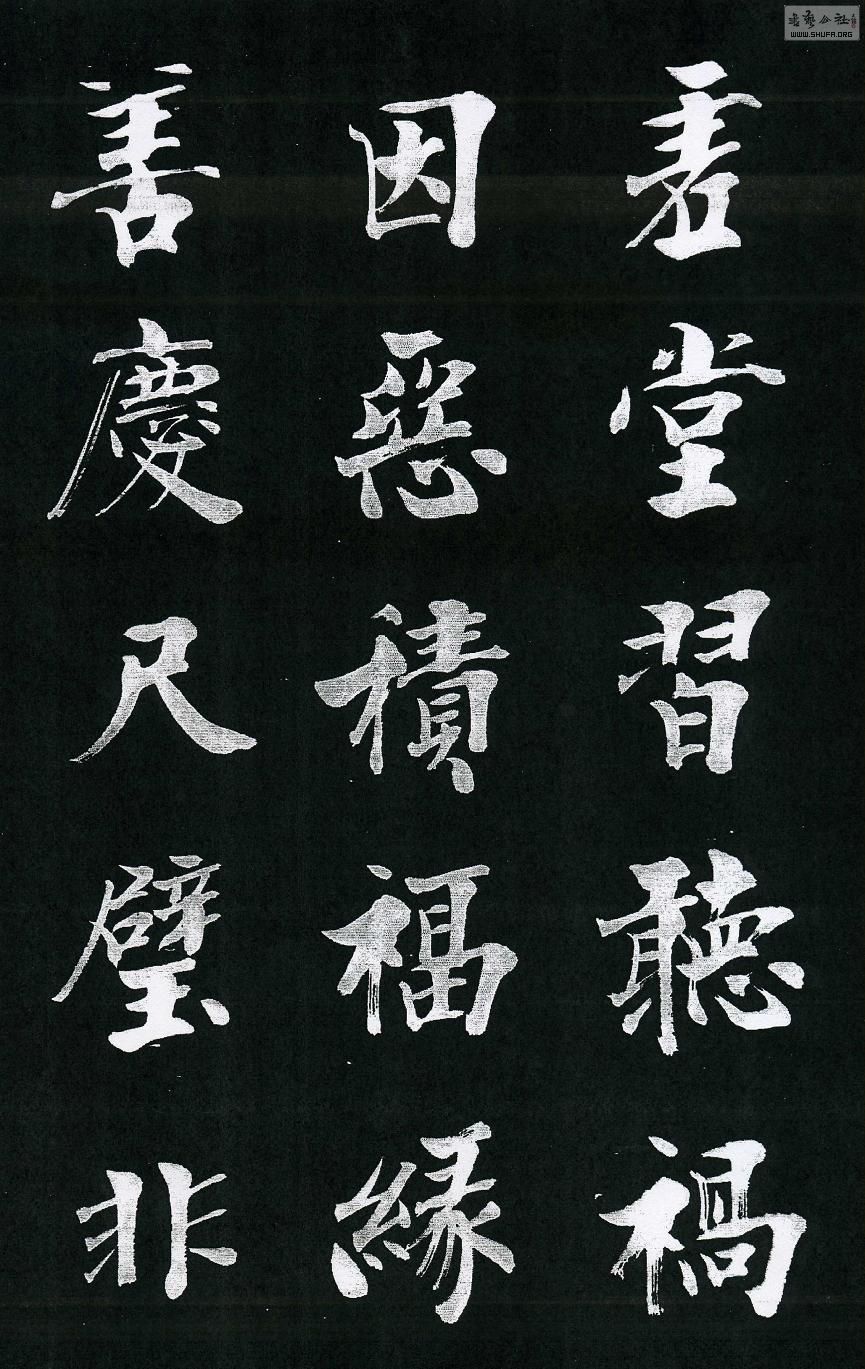 虛堂習聽禍
因惡積福緣
善慶尺璧非
書藝公社
WWW.SHUFA.ORG